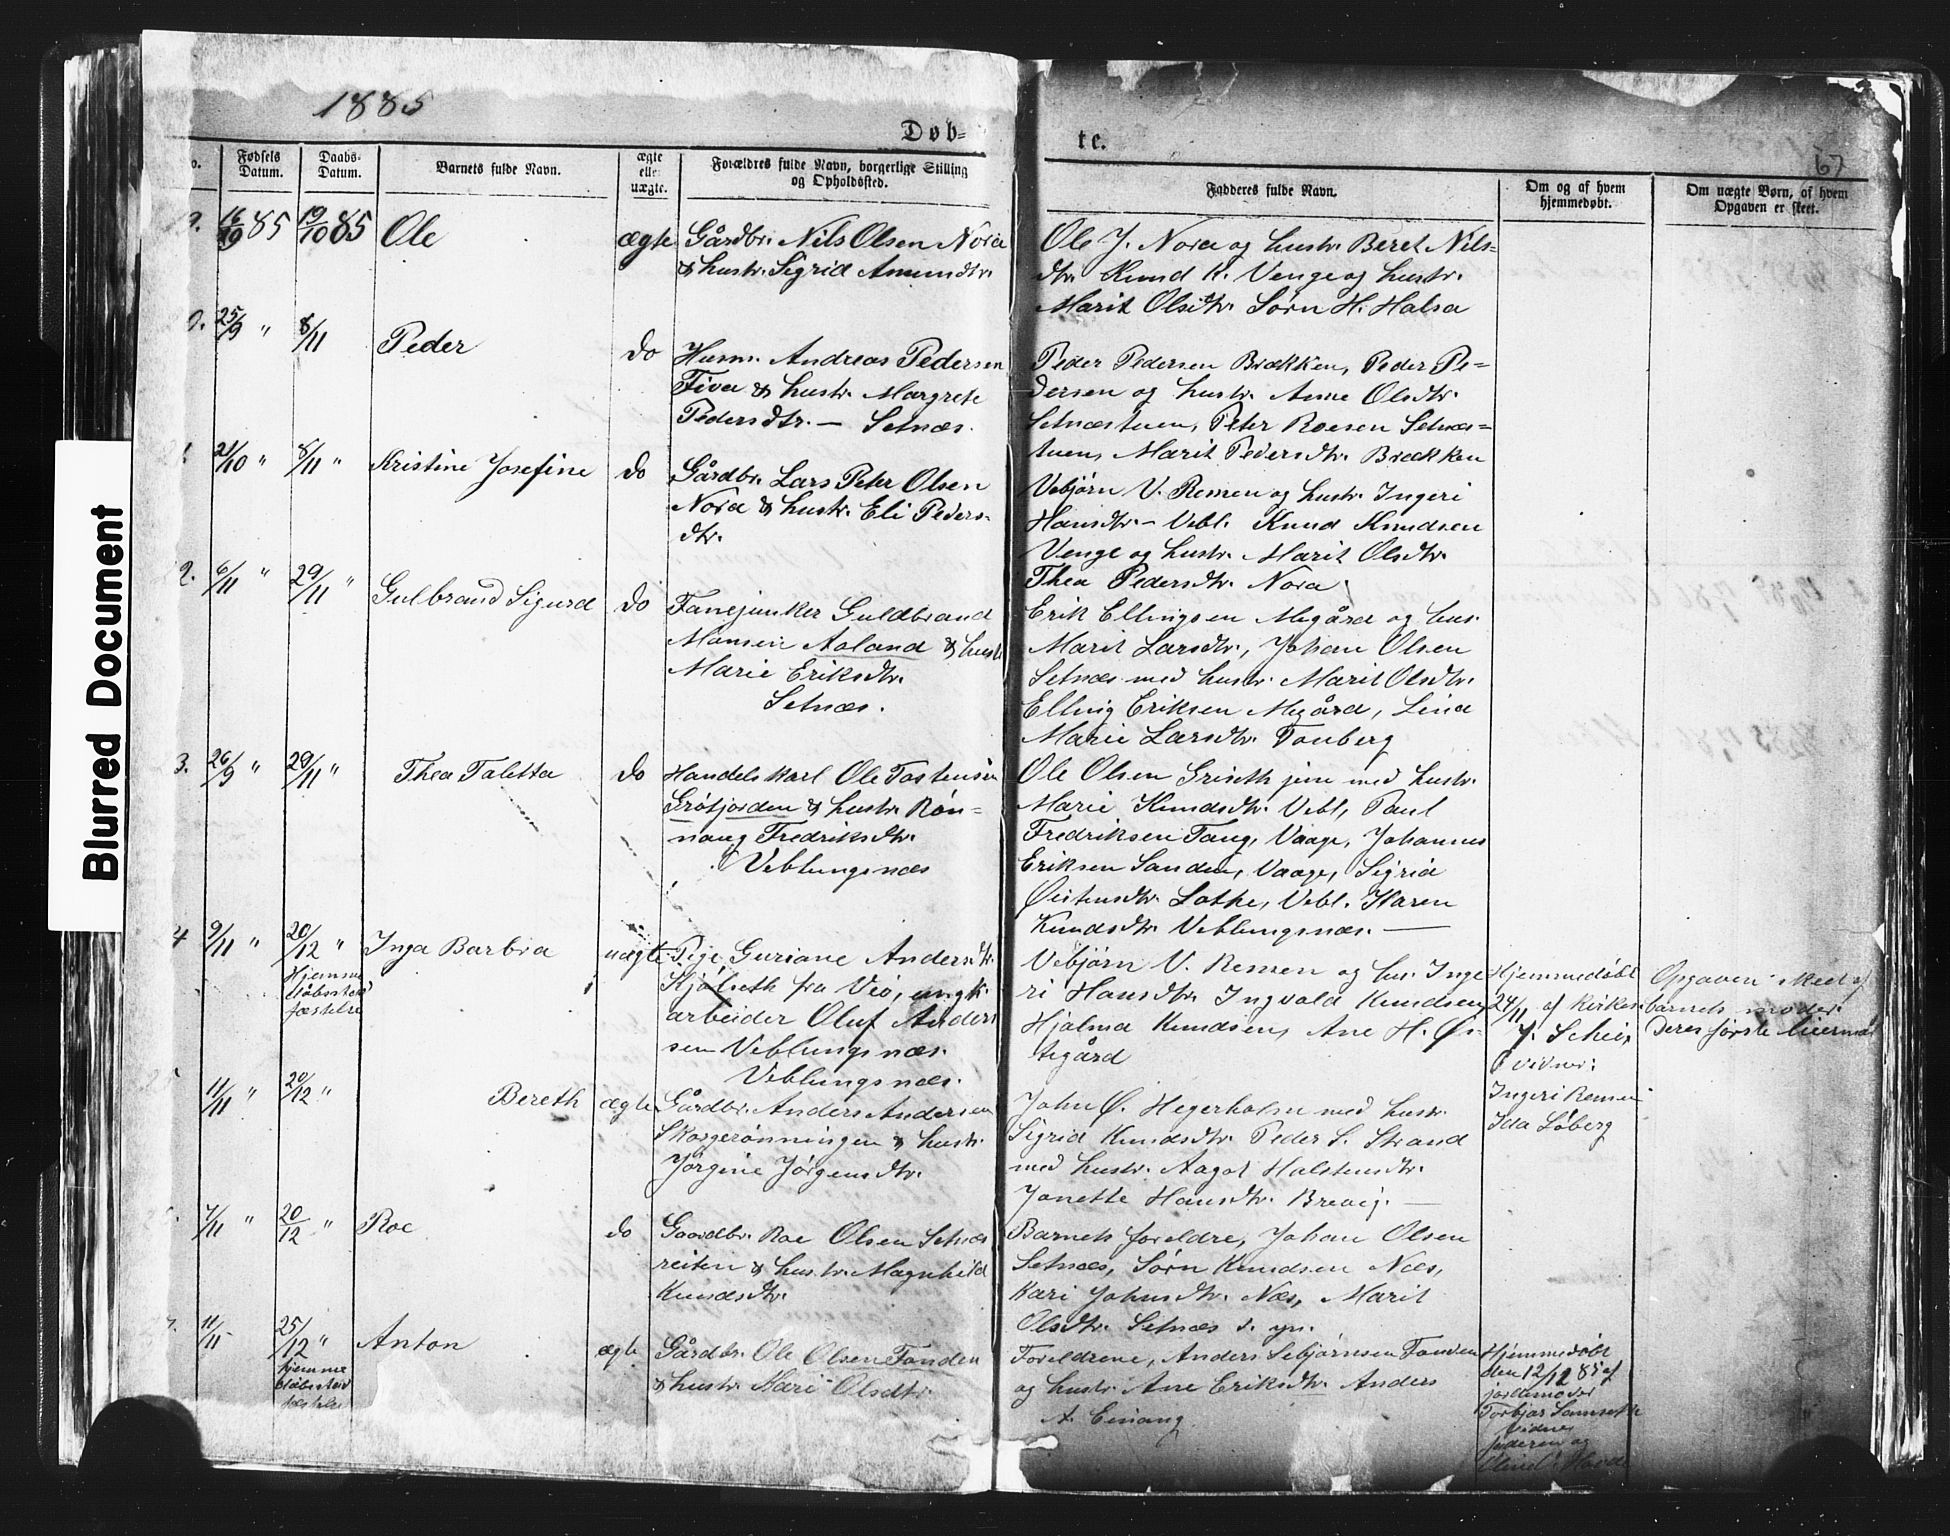 1885
Døb-
te.
67
Fødsels Datum.
Daabs-Datum.
Barnets fulde Navn.
ægte elle uægte.
Forældres fulde Navn, borgerlige Stilling og Opholdssted.
Fadderes fulde Navn.
Om og af hvem hjemmedøbt.
Om uægte Børn, af hvem Opgaven er skeet.
16/9 85 19/10 85 Ole ægte Gårdbr. Nils Olsen Nora
& hustr. Sigrid Amundtr.
Ole J. Nora og hustr. Beret Nils-
dtr. Knud K. Venge og hustr.
Marit Olsdtr. Sørn H. Halsa
25/9 " 8/11 Peder do Husm. Andreas Pedersen
Fiva & hustr. Margrete
Pedersdtr. — Setnæs.
Peder Pedersen Brækken, Peder Pe-
dersen og hustr. Anne Olsdtr.
Setnæstuen, Peter Roesen Setnæs-
tuen, Marit Pedersdtr. Brækken
21/10 " 8/11 " Kristine Josefine do Gårdbr. Lars Peter Olsen
Nora & hustr. Eli Peders-
dtr.
Vebjørn V. Remen og hustr. Ingeri
Hansdtr. - Vebl. Knud Knudsen
Venge og hustr. Marit Olsdtr.
Thea Pedersdtr. Nora
2. 6/11 " 29/11 " Gulbrand Sigurd do Fanejunker Guldbrand
Monsen Aaland & hustr
Marie Eriksdtr.
Setnæs.
Erik Ellingsen Megård og hus.
Marit Larsdtr., Johan Olsen
Setnæs med hustr. Marit Olsdtr.
Elling Eriksen Megård, Lina
Marie Larsdtr. Tonberg
3. 26/9 " 29/11 " Thea Taletta do Handelskarl Ole Tostensen
Grøtjorden & hustr. Røn-
naug Fredriksdtr.
Veblungsnæs
Ole Olsen Griseth jun med hustr.
Marie Knudsdtr. Vebl, Paul
Fredriksen Tang, Vaage, Johannes
Eriksen Sanden, Vaage, Sigrid
Øistensdtr. Lothe, Vebl. Karen
Knudsdtr. Veblungsnæs. —
4 9/11 " 20/12 " Inga Barbra uægte Pige Guriane Andersdtr.
Hjemme
dåbsstad
fæstelse
Kjølseth fra Veø, ungk.
arbeider Oluf Anders
sen Veblungsnæs.
Veblungsnæs.
Vebjørn V. Remen og hus. Inge
ri Hansdtr. Ingvald Knudsen,
Hjalma Knudsen, Ane H. Øs-
tigård
Hjemmedøbt
24/11 af kirkes.
J. Schei,
vidner:
Ingeri Remen
Ida Løberg
Opgaven skeet af
barnets moder.
Deres første leiermål
11/11 " 20/12 " Bereth ægte Gårdbr. Anders Andersen
Skorgerønningen & hustr.
Jørgine Jørgensdtr.
John Ø. Hegerholm med hustr.
Sigrid Knudsdtr. Peder S. Strand
med hustr. Aagot Halstensdtr.
Janette Hansdtr. Brevig. —
7/11 " 20/12 " Roe do Gaardbr. Roe Olsen Setnæs
reiten & hustr. Magnhild
Knudsdtr.
Barnets foreldre, Johan Olsen
Setnæs, Sørn Knudsen Næs,
Kari Johnsdtr. Næs, Marit
Olsdtr. Setnæs d. yn.
11/11 25/12 " Anton ægte Gårdbr. Ole Olsen Fonden
hjemme
dåbsstad
& hustr. Kari Olsdtr.
Foreldrene, Anders Sebjørnsen Fonden
og hustr. Ane Eriksdtr. Anders
A. Einang
Hjemmedøbt
den 12/12 85 af
jordemoder
Torbjør
vidner
Blurred Document